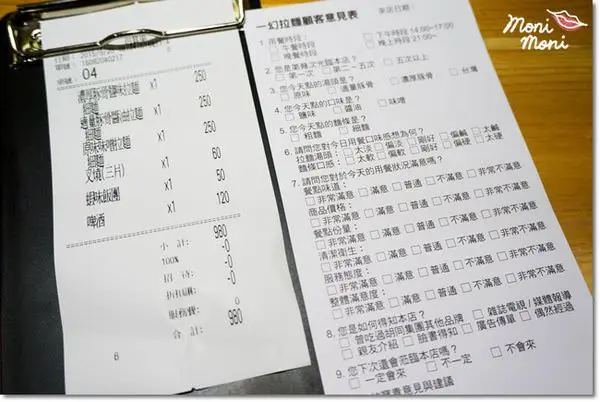 Moni
Moni
04
x1 250
細麵
x1 250
細麵
x1 250
細麵
叉燒(三片) x1 60
x1 50
啤酒 x1 120
小 計: 980
100% -0
-0
-0
0
合 計: 980
6
一幻拉麵顧客意見表
來店日期:
1.用餐時段:
午餐時段 下午時段 14:00~17:00
晚餐時段 晚上時段 21:00~
2.您是第幾次光臨本店?
第一次 第二~五次 五次以上
3.您今天點的湯頭是?
原味 適量豚骨 濃厚豚骨 台灣
4.您今天點的口味是?
鹽味 醬油 味噌
5.您今天點的麵條是?
粗麵 細麵
6.請問您對今日用餐口味感想為何?
拉麵湯頭: 太淡 偏淡 剛好 偏鹹 太鹹
麵條口感: 太軟 偏軟 剛好 偏硬 太硬
7.請問您對於今天的用餐狀況滿意嗎?
餐點味道:
非常滿意 滿意 普通 不滿意 非常不滿意
商品價格:
非常滿意 滿意 普通 不滿意 非常不滿意
餐點份量:
非常滿意 滿意 普通 不滿意 非常不滿意
清潔衛生:
非常滿意 滿意 普通 不滿意 非常不滿意
服務態度:
非常滿意 滿意 普通 不滿意 非常不滿意
整體滿意度:
非常滿意 滿意 普通 不滿意 非常不滿意
8.您是如何得知本店?
曾吃過胡同集團其他品牌 雜誌電視/媒體報導
親友介紹 臉書得知 廣告傳單 偶然經過
9.您下次還會蒞臨本店嗎?
一定會來 不一定 不會來
寶貴意見與建議